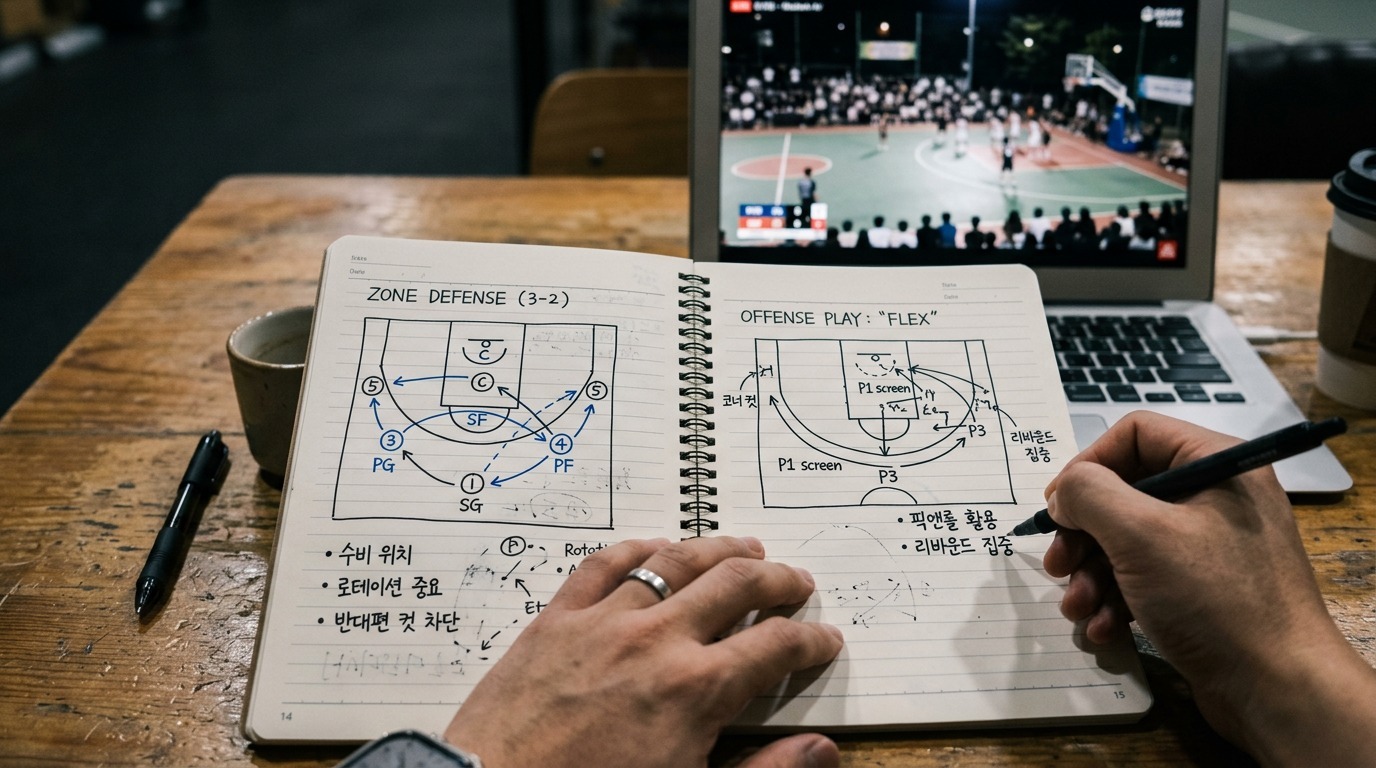 Date
ZONE DEFENSE (3-2)
C
C
5
5
SF
3
4
PG
PF
1
SG
• 수비 위치
• 로테이션 중요
• 반대편 컷 차단
P
14
Date
OFFENSE PLAY: "FLEX"
P1 screen
코너 컷
P3
리바운드
집중
P1 screen
P3
• 픽앤롤 활용
• 리바운드 집중
15